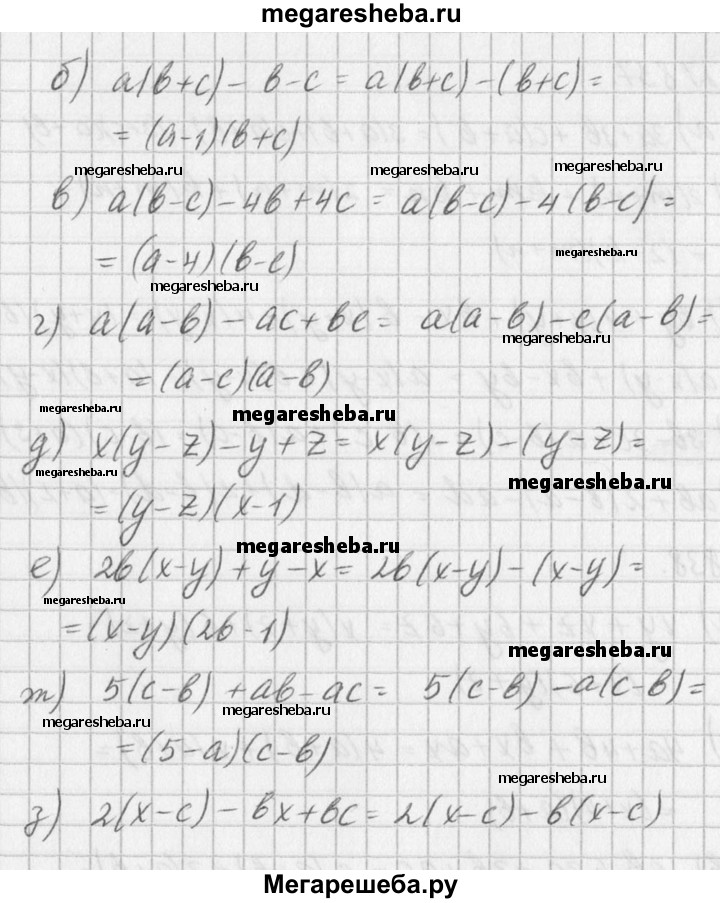 megaresheba.ru
б) a(b+c) - b - c = a(b+c) - (b+c) =
= (a-1)(b+c)
megaresheba.ru megaresheba.ru megaresheba.ru
в) a(b-c) - 4b + 4c = a(b-c) - 4(b-c) =
= (a-4)(b-c)
megaresheba.ru
megaresheba.ru
г) a(a-b) - ac + bc = a(a-b) - c(a-b) =
megaresheba.ru
= (a-c)(a-b)
megaresheba.ru megaresheba.ru
д) x(y-z) - y + z = x(y-z) - (y-z) =
megaresheba.ru megaresheba.ru
= (y-z)(x-1)
megaresheba.ru
е) 2b(x-y) + y - x = 2b(x-y) - (x-y) =
megaresheba.ru
= (x-y)(2b-1)
megaresheba.ru
ж) 5(c-b) + ab - ac = 5(c-b) - a(c-b) =
megaresheba.ru megaresheba.ru
= (5-a)(c-b)
megaresheba.ru
з) 2(x-c) - bx + bc = 2(x-c) - b(x-c)
Мегарешеба.ру